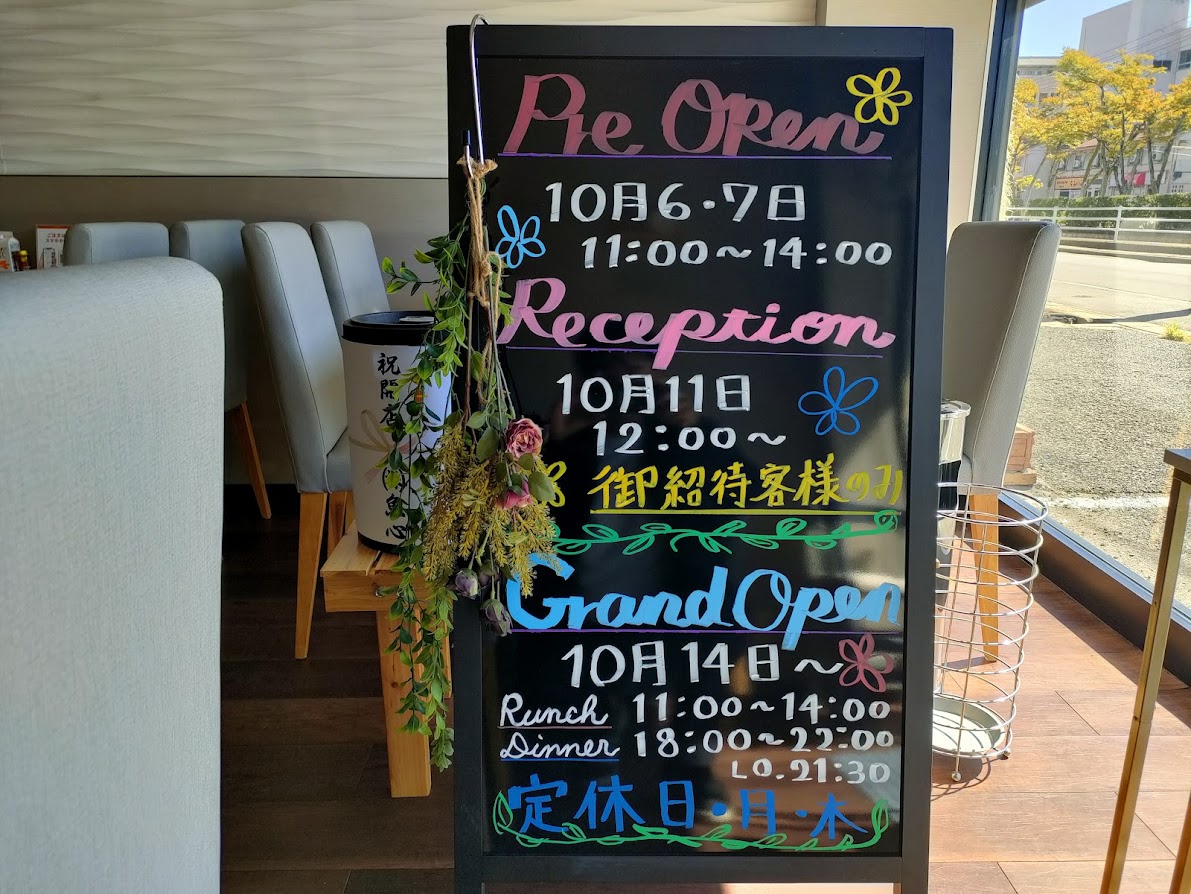 Pre Open
10月6・7日
11:00~14:00
Reception
10月11日
12:00~
御紹待客様のみ
Grand Open
10月14日~
Runch 11:00~14:00
Dinner 18:00~22:00
LO.21:30
定休日・月・木
祝開店